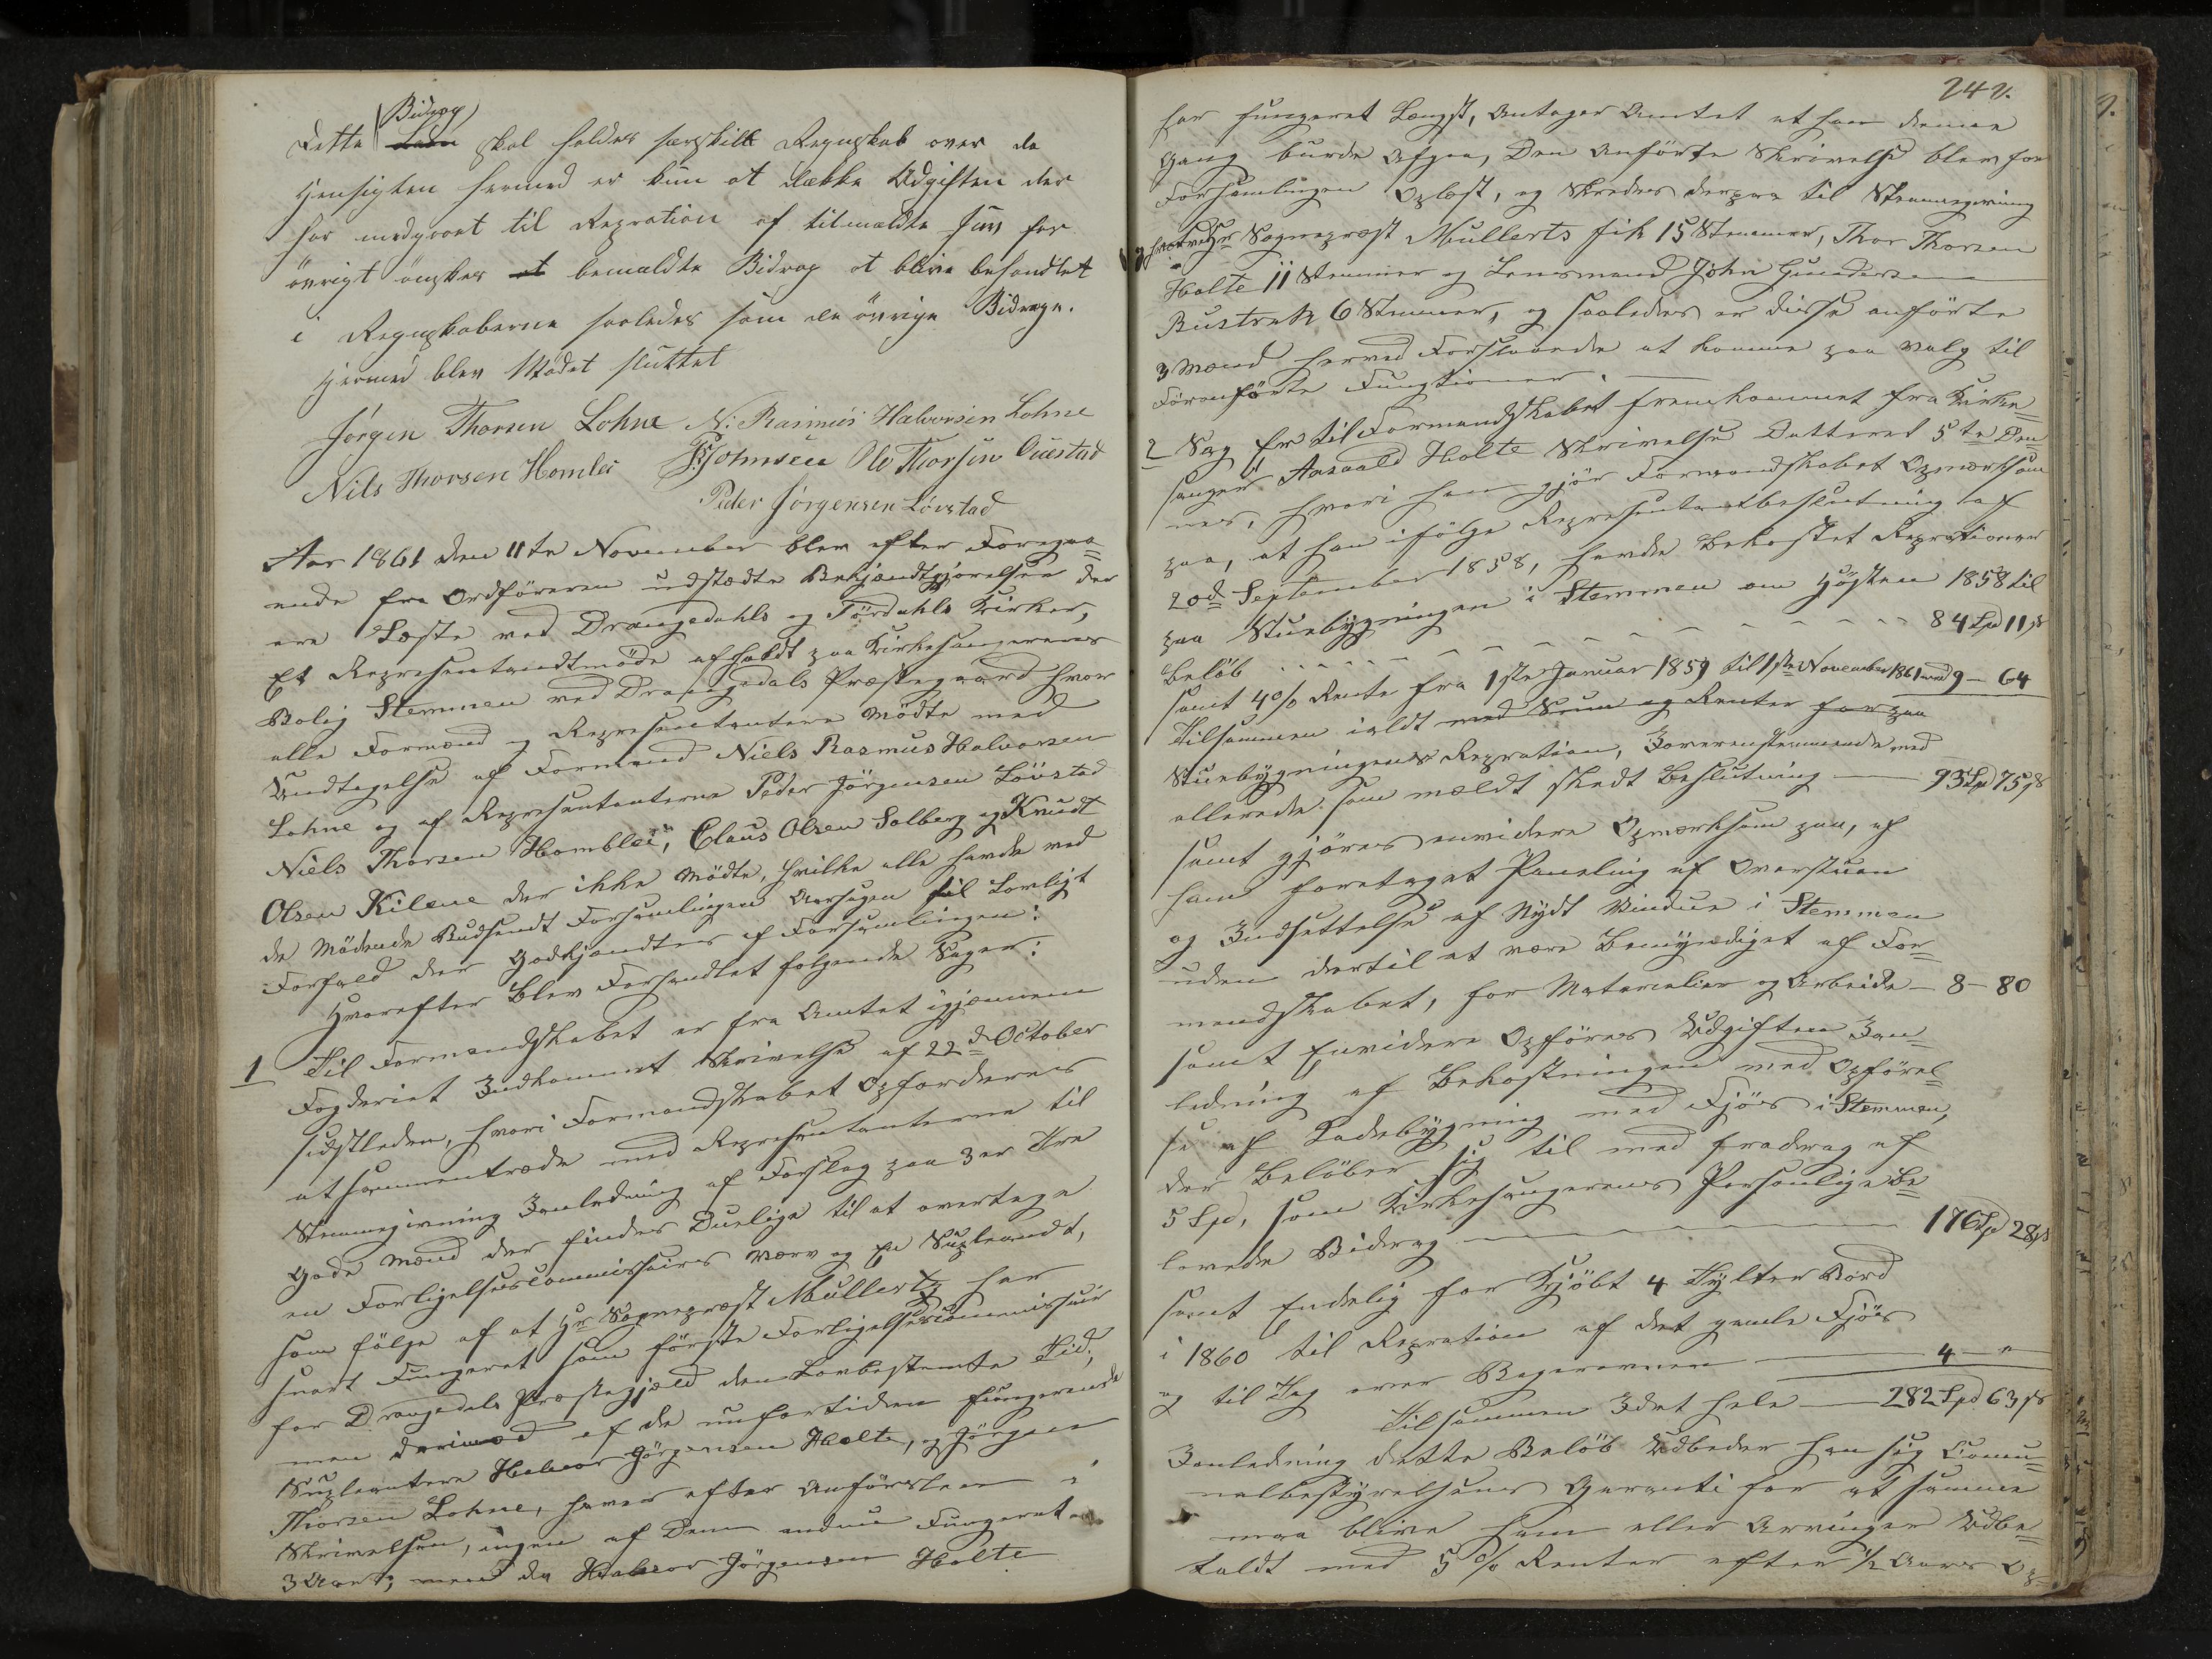 Bidrag
Dette Laan skal holdes særskilt Regnskab over da
Hensigten hermed er kun at dække Udgiften der
har medgaaet til Repration af tilmældte Huus for
övrigt önskes at bemældte Bidrag at blive behandlet
i Regnskaberne saaledes som de övrige Bidrage.
Hermed blev Mödet sluttet
Jörgen Thorsen Lohne N: Rasmus Halvorsen Lohne
Nils Thorsen Homlei Johnsen Ole Thorsen Ouestad
Peder Jörgensen Lövstad
Aar 1861 den 11te November blev efter Foregaa=
ende fra Ordföreren udstædte Bekjendtgjörelser der
ere Læste ved Drangedahls og Tördahls Kirker,
Et Representandtmöde afholdt paa Kirkesangerens
Bolig Stemmen ved Drangedals Præstegaard hvor
alle Formænd og Representantere Mödte med
Undtagelse af Formand Niels Rasmus Halvorsen
Lohne og af Representanterne Peder Jörgensen Lövstad
Niels Thorsen Homblei, Claus Olsen Solberg og Knudt
Olsen Kilene der ikke Mödte, hvilke alle havde ved
de Mödende Budsendt Forsamlingen Aarsagen til Lovligt
Forfald der Godkjendtes af Forsamlingen:
Hvorefter Blev Forhandlet følgende Sager:
1 Til Formandskabet er fra Amtet igjennem
Fogderiet Indkommet Skrivelse af 22de October
sidstleden, hvori Formandskabet Opfordres
at sammentræde med Representanterne til
Stemmegivning Ianledning af Forslag paa 3er Tre
Gode Mænd der findes Duelige til at overtage
en Forligelsescommissairs Værv og En Supleandt,
som fölge af at Hr Sognepræst Mullertz har
snart Fungeret som förste Forligelsescommissair
for Drangedals Præstegjeld den Lovbestemte Tid,
men derimod af de nufortiden fungerende
Supleantere Halvor Jörgensen Holte, og Jörgen
Thorsen Lohne, haver efter Anförselen i
Skrivelsen, ingen af Dem endnu Fungeret
3 Aar; men da Halvor Jörgensen Holte
242.
har fungeret Længst, Antager Amtet at han denne
Gang burde Afgaa, Den Anförte Skrivelse blev for
Forsamlingen Oplæst, og Skredes derpaa til Stemmegivning
hvorved Hr Sognepræst Mullerts fik 15 Stemmer, Thor Thorsen
Holte 11 Stemmer og Lensmand John Gundersen
Bustrak 6 Stemmer, og saaledes er disse anförte
3 Mænd herved Forslaaede at komme paa Valg til
Foranförte Fungtioner.
2 Sag Er til Formandskabet fremkommet fra Kirke=
sanger Aasvald Holte Skrivelse Datteret 5te Den=
nes, hvori han gjör Formandskabet Opmærksom
paa, at han ifölge Representantbeslutning af
20de September 1858, havde Bekostet Reprationer
paa Stuebygningen i Stemmen om Hösten 1858 til
Belöb 84 Spd 11 s
samt 4% Rente fra 1ste Januar 1859 til 1ste November 1861 med 9 - 64
Tilsammen ialdt med Sum og Renter for paa
Stuebygningens Repration, Ioverenstemmende med
allerede som mældt skedt Beslutning 93 Spd 75 s
samt gjöres envidere Opmærksom paa, af
ham foretaget Paneling af Overstuen
og Indsettelse af Nydt Vindue i Stemmen
uden dertil at være Bemyndiget af For=
mandskabet, for Materialier og Arbeide - 8 - 80
samt Envidere Opföres Udgiften Ian=
ledning af Bekostningen med Opförel=
se af Ladebygning med Fjös i Stemmen,
der Belöber sig til med fradrag af
5 Spd, som Kirkesangerens Personlige Be=
lovede Bidrag 176 Spd 28 s
samt Endelig for Kjöbt 4 Tylter Bord
i 1860 til Repration af det gamle Fjös
og til Tag over Bagerovnen 4 - "
Tilsammen Idet hele 282 Spd 63 s
Ianledning dette Belöb Udbeder han sig Comu=
nalbestyrelsens Garanti for at samme
maa blive ham eller Arvinger Udbe=
taldt med 5% Renter efter 1/2 Aars Op=